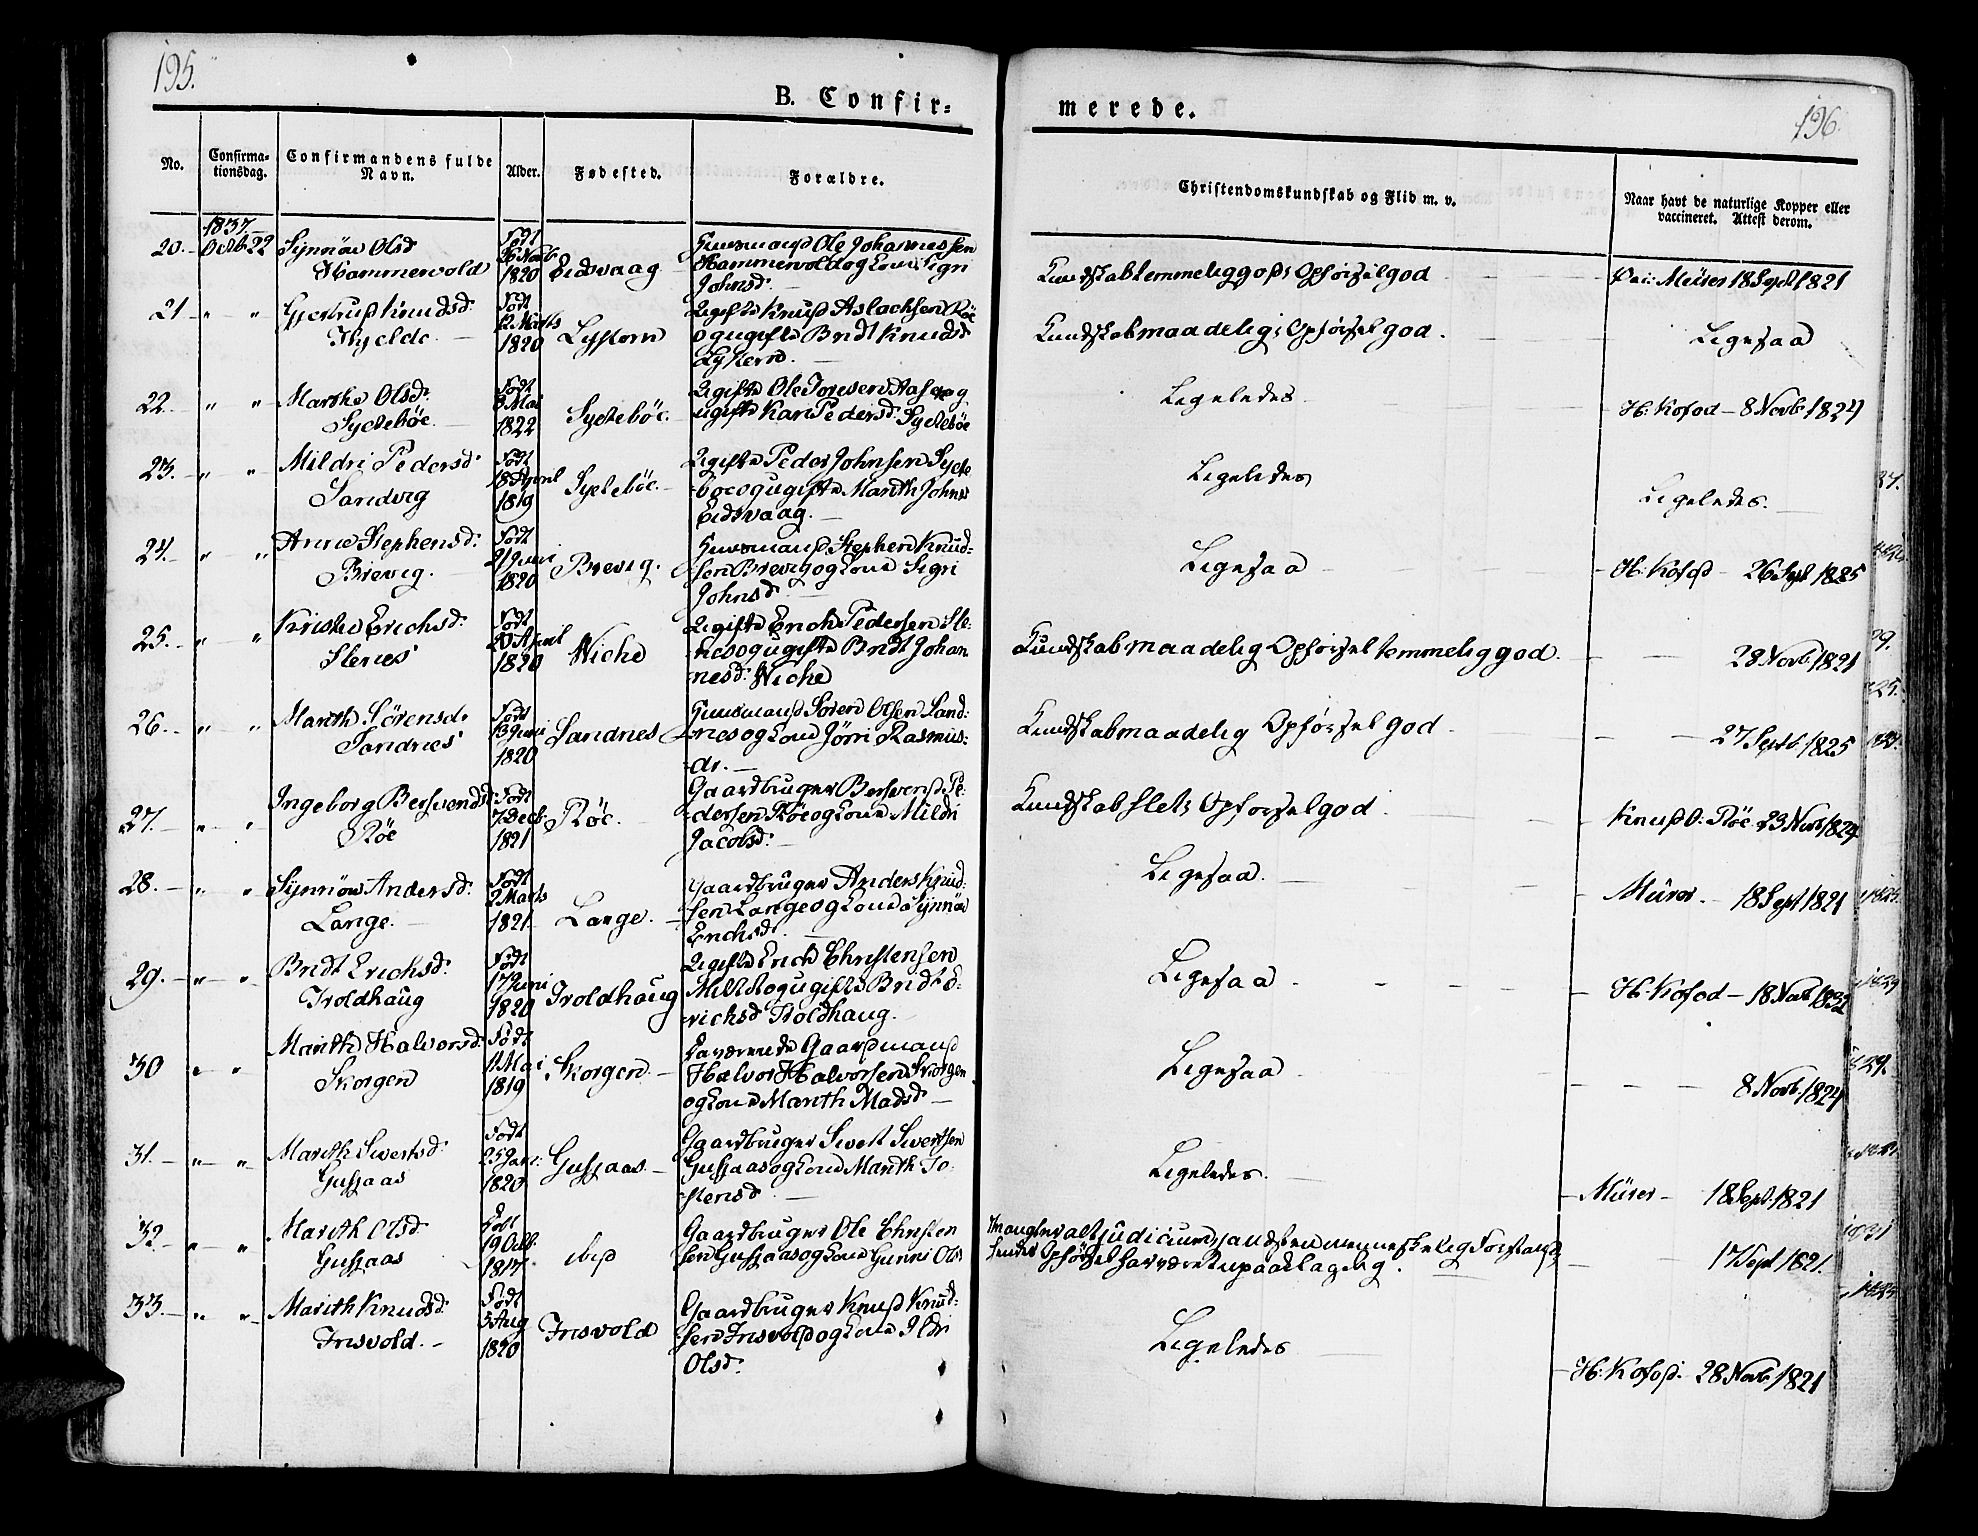 195.
B. Confir=
merede.
196.
No.
Confirma-
tionsdag.
Confirmandens fulde
Navn.
Alder.
Fødested.
Forældre.
Christendomskundskab og Flid m. v.
Naar havt de naturlige Kopper eller
vaccineret. Attest derom.
1837.
20. Octb. 22 Synnöw Olsd
Hammervold
Födt
Novb
1820
Eidsvaag
Huusmand Ole Johannessen
Hammervold og Kone Sigri
Johnsd.
Kundskab temmelig god; Opförsel god
Müres 18 Sept 1821
21 " " Gjertrud Knudsd:
Hyelde
Födt
12 Marts
1820
Ugifte Knud Aslachsen Röe
og ugifte Bridt Knudsd
Kundskab maadelig; Opförsel god.
Ligesaa
22. " " Marthe Olsd:
Syltebőe
Födt
8 Mai
1822
Syltebőe
Ugifte Ole Toresen Aas og
ugifte Kari Pedersd. Syltebőe
Ligeledes
H: Kofod - 8 Novb 1824
23. " " Mildri Pedersd:
Sandvig
Födt
18 April
1819
Syltebőe.
Ugifte Peder Johnsen Sylte
-böe og ugifte Marith Johnsd
Eidsvaag.
Ligeledes
Ligeledes.
24. " " Anne Stephensd:
Brevig.
Födt
21 Juni
1820
Brevig.
Huusmand Stephen Knud=
sen Brevig og Kone Sigri
Johnsd.
Ligesaa
H: Kofod - 26 Sept 1825
25. " " Kristie Erichsd:
Stenes
Födt
20 April
1820
Wiche
Ugifte Erich Pedersen Ste-
nes og ugifte Bridt Johan
nesd: Wiche
Kundskab maadelig Opförsel temmelig god.
28 Novb 1821
26. " " Marith Sörensd:
Sandnes
Födt
13 Juni
1820
Sandnes
Huusmand Sören Olsen Sand=
nes og Kone Jörri Rasmus=
dr.
Kundskab maadelig Opförsel god.
27 Septb 1825
27. " " Ingeborg Bersvendsd
Röe
Födt
7 Decb.
1821
Röe.
Gaardbruger Bersvend Pe-
dersen Röe og Kone Mildri
Jacobsd:
Kundskab slet; Opförsel god
Knud O. Röe 23 Novb 1824
28. " " Synnöw Andersd:
Lange.
Födt
2 Marts
1821
Lange.
Gaardbruger Anders Knud-
sen Lange og Kone Synnöw
Erichsd.
Ligesaa.
Müres - 18 Sept 1821
29. " " Bridt Erichsd:
Troldhaug
Födt
17 Juni
1820
Troldhaug
Ugifte Erich Christensen
og ugifte Bridt E-
richsd Troldhaug.
Ligesaa
H: Kofod - 18 Novb 1832
30 " " Marith Halvorsd:
Skorgen
Födt
11 Mai
1819
Skorgen.
Gaardmand
Halvor Halvorsen Skorgen
og Kone Marith Madsd
Ligesaa
8 Novb. 1824
31. " " Marith Sivertsd:
Gussaas
Födt
25 Jan:
1820
Gussaas.
Gaardbruger Sivert Sivertsen
Gussaas og Kone Marith To-
stensd
Ligeledes.
Müres - 18 Sept. 1821
32. " " Marith Olsd:
Gussaas
Födt
19 Octb.
1817.
ibid
Gaardbruger Ole Christen
sen Gussaas og Kone Gunni Olsd
Mangler alt judicium, sandsten menneskelig Forstand;
hendes Opförsel har været upaaklagelig.
17 Sept 1821.
33. " " Marith Knudsd:
Trisvold.
Födt
5 Aug
1820
Trisvold
Gaardbruger Knud Knud-
sen Trisvold og Kone Ildri
Olsd:
Ligeledes
H: Kofod. 28 Novb 1821